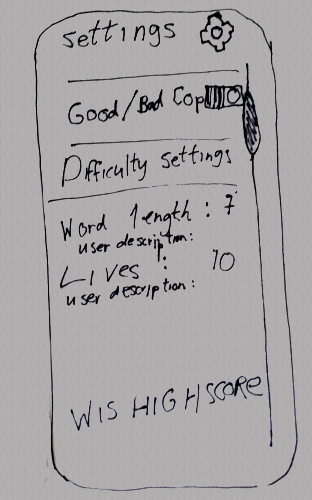 settings
Good/Bad Cop
Difficulty settings
Word length : 7
user description:
Lives : 10
user description:
WIS HIGHSCORE